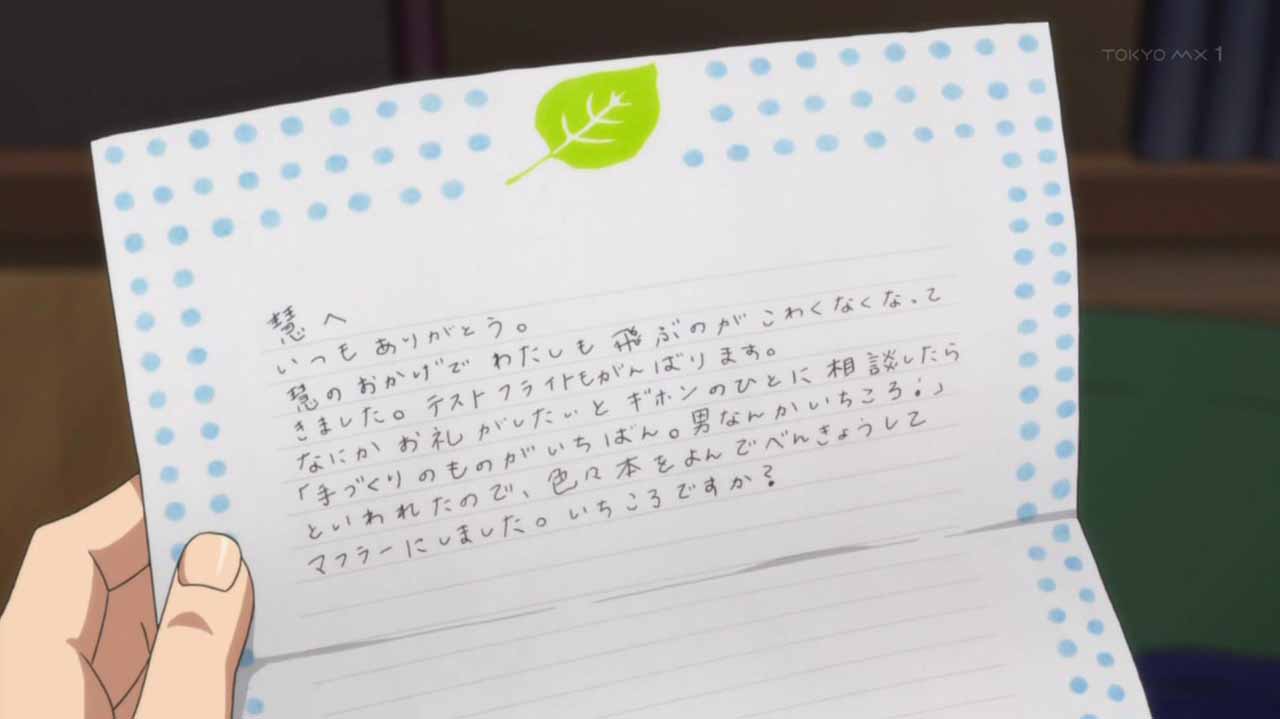 TOKYO MX 1
慧へ
いつもありがとう。
慧のおかげでわたしも飛ぶのがこわくなくなって
きました。テストフライトもがんばります。
なにかお礼がしたいとギホンのひとに相談したら
「手づくりのものがいちばん。男なんかいちころ!」
といわれたので、色々本をよんでべんきょうして
マフラーにしました。いちころですか?